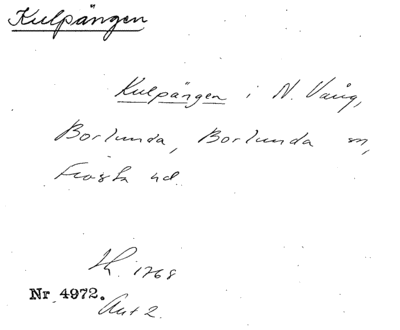 Kulpängen
Kulpängen i N. Vång,
Borlunda, Borlunda sn,
Frosta hd.
Sk. 1768
Nr 4972.
Akt 2.